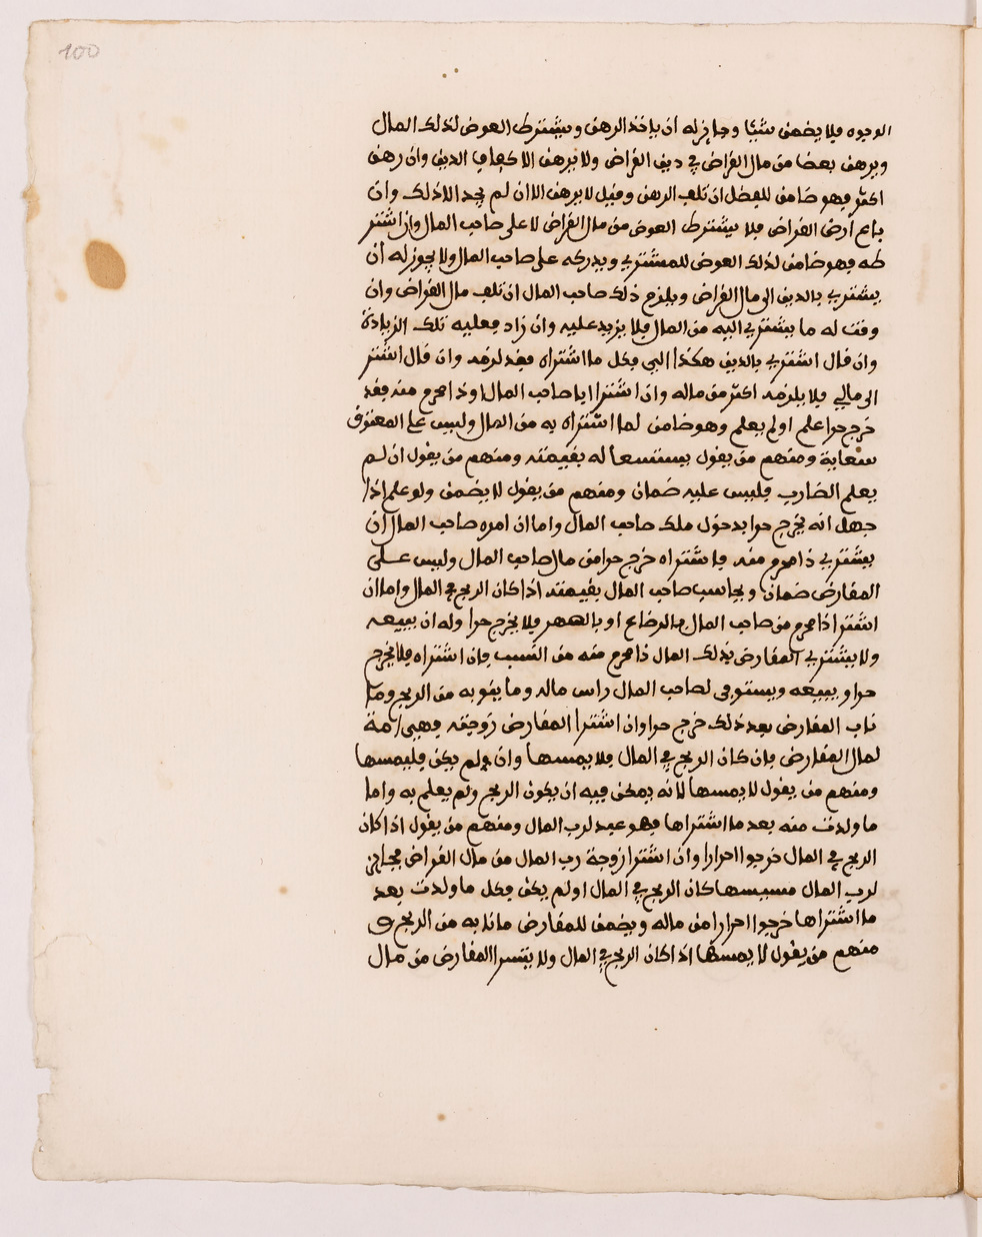 100
الوجوه فلا يضمن شيئا وجايز له ان ياخذ الرهن ويشترط العوض لذلك المال
ويرهن بعضا من مال القراض في دين القراض ولا يرهن الا كفاف الدين وان رهن
اكثر فهو ضامن للفضل ان تلف الرهن وقيل لا يرهن الا ان لم يجد الا ذلك وان
باع ارض القراض فلا يشترط العوض من مال القراض لا على صاحب المال وان اشتر
طه فهو ضامن لذلك العوض للمشتري ويدركه على صاحب المال ولا يجوز له ان
يشتري بالدين الى مال القراض ويلزم ذلك صاحب المال ان تلف مال القراض وان
وقت له ما يشتري اليه من المال فلا يزيد عليه وان زاد فعليه تلك الزيادة
وان قال اشتري بالدين هكذا الي فكل ما اشتراه فقد لزمه وان قال اشتر
الى مالي فلا يلزمه اكثر من ماله وان اشترا ابا صاحب المال او ذا محرم منه فقد
خرج حرا علم او لم يعلم وهو ضامن لما اشتراه به من المال وليس على المعتوق
سعاية ومنهم من يقول يستسعا له بقيمته ومنهم من يقول ان لم
يعلم الضارب فليس عليه ضمان ومنهم من يقول لا يضمن ولو علم اذا
جهل انه يخرج حرا بدخول ملك صاحب المال واما ان امره صاحب المال ان
يشتري ذا محرم منه فاشتراه خرج حرا من مال صاحب المال وليس على
المقارض ضمان ويحاسب صاحب المال بقيمته اذا كان الربح في المال واما ان
اشترا ذا محرم من صاحب المال بالرضاع او بالصهر فلا يخرج حرا وله ان يبيعه
ولا يشتري المقارض بذلك المال ذا محرم منه من النسب فان اشتراه فلا يخرج
حرا ويبيعه ويستوفى لصاحب المال راس ماله وما ينوبه من الربح وما
ناب المقارض بعد ذلك خرج حرا وان اشترا المقارض زوجته فهي امة
لمال المقارض فان كان الربح في المال فلا يمسها وان لم يكن فليمسها
ومنهم من يقول لا يمسها لانه يمكن فيه ان يكون الربح ولم يعلم به واما
ما ولدت منه بعد ما اشتراها فهو عبد لرب المال ومنهم من يقول اذا كان
الربح في المال خرجوا احرارا وان اشترا زوجة رب المال من مال القراض فجايز
لرب المال مسيسها كان الربح في المال او لم يكن فكل ما ولدت بعد
ما اشتراها خرجوا احرارا من ماله ويضمن للمقارض ما نابه من الربح و
منهم من يقول لا يمسها اذا كان الربح في المال ولا يتسرا المقارض من مال